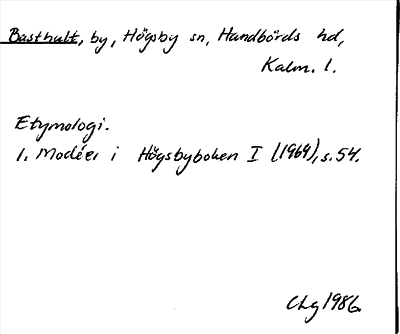 Basthult, by, Högsby sn, Handbörds hd,
Kalm. l.
Etymologi.
I. Modéer i Högsbyboken I (1969), s. 54.
CLg 1986.